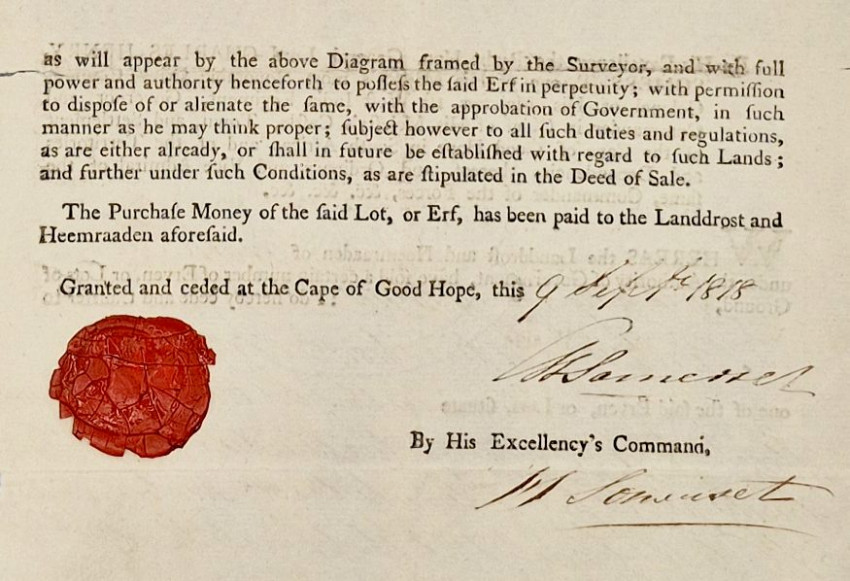 as will appear by the above Diagram framed by the Surveyor, and with full
power and authority henceforth to poſſeſs the ſaid Erf in perpetuity; with permiſſion
to diſpoſe of or alienate the ſame, with the approbation of Government, in ſuch
manner as he may think proper; ſubject however to all ſuch duties and regulations,
as are either already, or ſhall in future be eſtabliſhed with regard to ſuch Lands;
and further under ſuch Conditions, as are ſtipulated in the Deed of Sale.
The Purchaſe Money of the ſaid Lot, or Erf, has been paid to the Landdrost and
Heemraaden aforeſaid.
Granted and ceded at the Cape of Good Hope, this 9 Septr 1818
Somerset
By His Excellency's Command,
Somerset